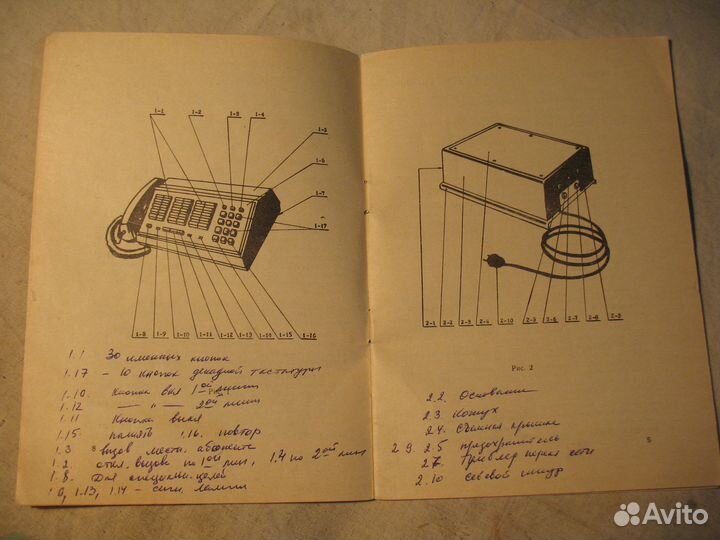 1-1 1-2 1-3 1-4
1-5
1-6
1-7
1-17
1-8 1-9 1-10 1-11 1-12 1-13 1-14 1-15 1-16
1.1 30 именных кнопок
1.17 - 10 кнопок декадной тастатуры
1.10 Кнопка вкл 1ой линии
1.12 — " — 2ой линии
1.11 Кнопка выкл
1.15 память 1.16. повтор
1.3 вызов местн. абонента
1.2 откл. вызов по 1ой лин, 1.4 по 2ой лин
1.8 Для специальн. целей
1.13, 1.14 - сигн. лампы
2-1 2-2 2-3 2-4 2-10 2-5 2-6 2-7 2-8 2-9
Рис. 2
2.2. Основание
2.3. Кожух
2.4. Съемная крышка
2.9. 2.5 предохранитель
2.7. Тумблер перекл сети
2.10 Сетевой шнур
5
Avito